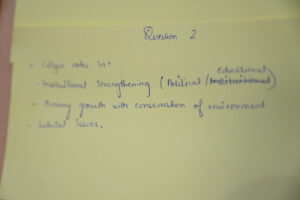 Question 2
• Citizen roles in?
educational
• Institutional Strengthening (Political / Institutional)
• Economy growth with conservation of environment
• Societal issues.